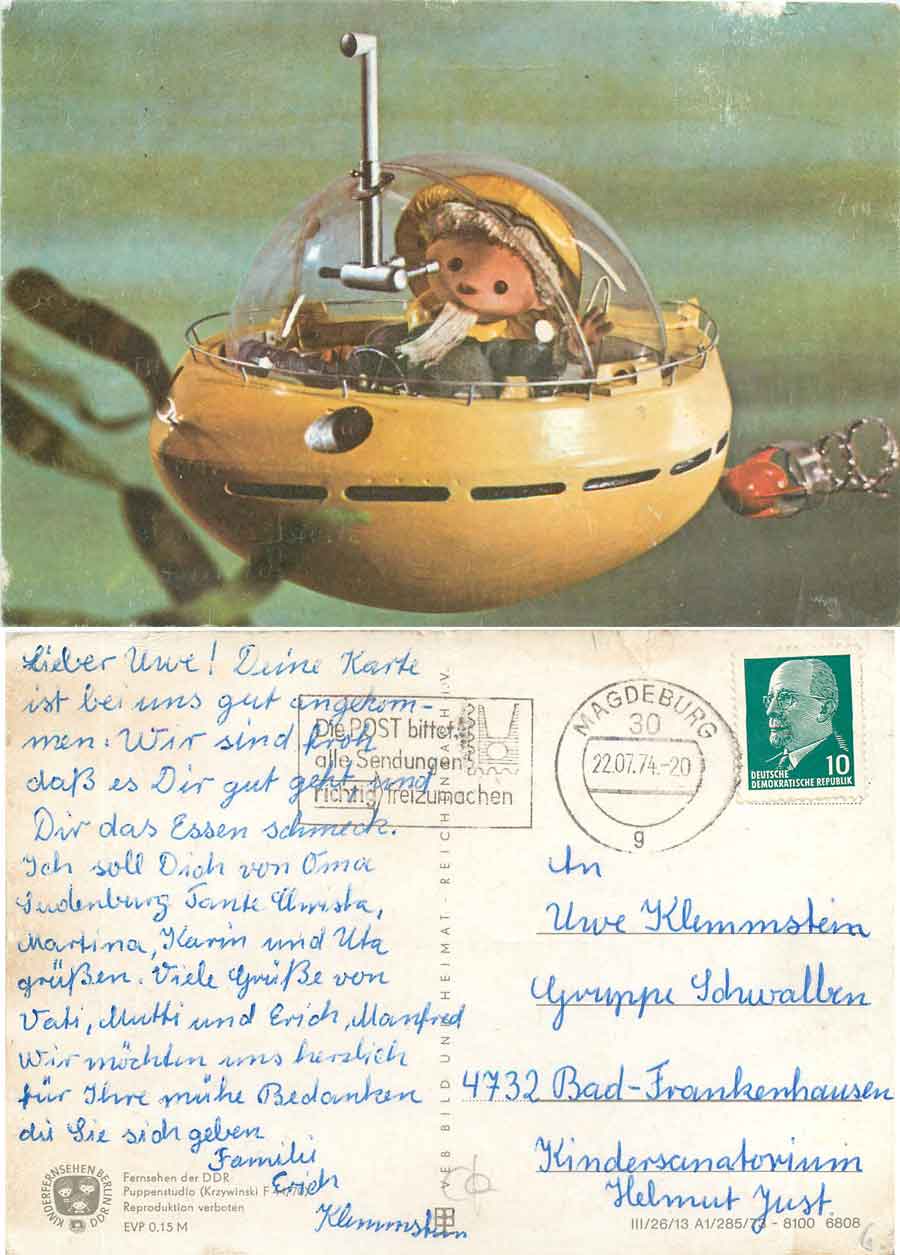 Lieber Uwe! Deine Karte
ist bei uns gut angekom-
men. Wir sind froh
daß es Dir gut geht, und
Dir das Essen schmeck.
Ich soll Dich von Oma
Sudenburg Tante Christa,
Martina, Karin und Uta
grüßen. Viele Grüße von
Vati, Mutti und Erich, Manfred
Wir möchten uns herzlich
für Ihre mühe Bedanken
die Sie sich geben
Familie
Erich
Klemmstein
KINDERFERNSEHEN BERLIN DDR
Fernsehen der DDR
Puppenstudio (Krzywinski F
Reproduktion verboten
EVP 0,15 M
VEB BILD UND HEIMAT · REICHENBACH I. V.
Die POST bittet:
alle Sendungen
richtig freizumachen
MAGDEBURG
30
22.07.74.-20
g
10
DEUTSCHE
DEMOKRATISCHE REPUBLIK
An
Uwe Klemmstein
Gruppe Schwalben
4732 Bad-Frankenhausen
Kindersanatorium
Helmut Just.
III/26/13 A1/285/73 - 8100 6808